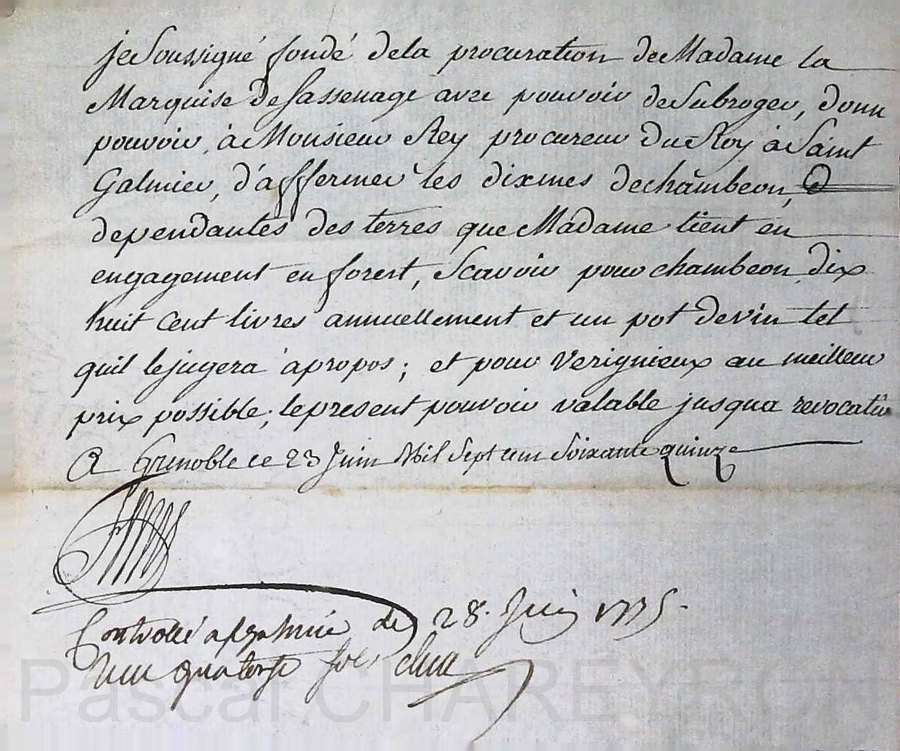 je Soussigné fondé dela procuration de Madame la
Marquise de Sassenage avec pouvoir de Subroger, donne
pouvoir, à Monsieur Rey procureur du Roy à Saint
Galmier, d'affermer les dixmes de chambeon,
dependantes des terres que Madame tient en
engagement en forest, Scavoir pour chambeon dix
huit cent livres annuellement et un pot de vin tel
quil le jugera à propos; et pour Verignieux au meilleur
prix possible; le present pouvoir valable jusqua revocation
A Grenoble ce 23 Juin Mil Sept cent Soixante quinze
Controllé a St galmier le 28. Juin 1775.
quatorze sols
Pascal CHAREYRON